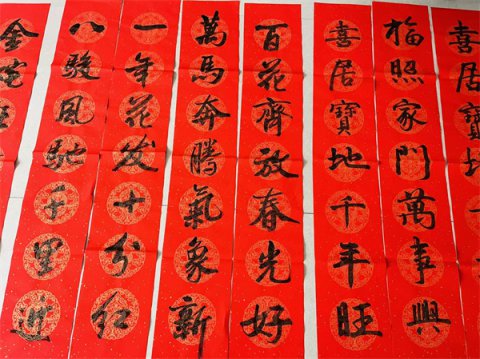 喜居寶
福照家門萬事興
喜居寶地千年旺
百花齊放春光好
萬馬奔騰氣象新
一年花发十分红
八駿風馳千里
金